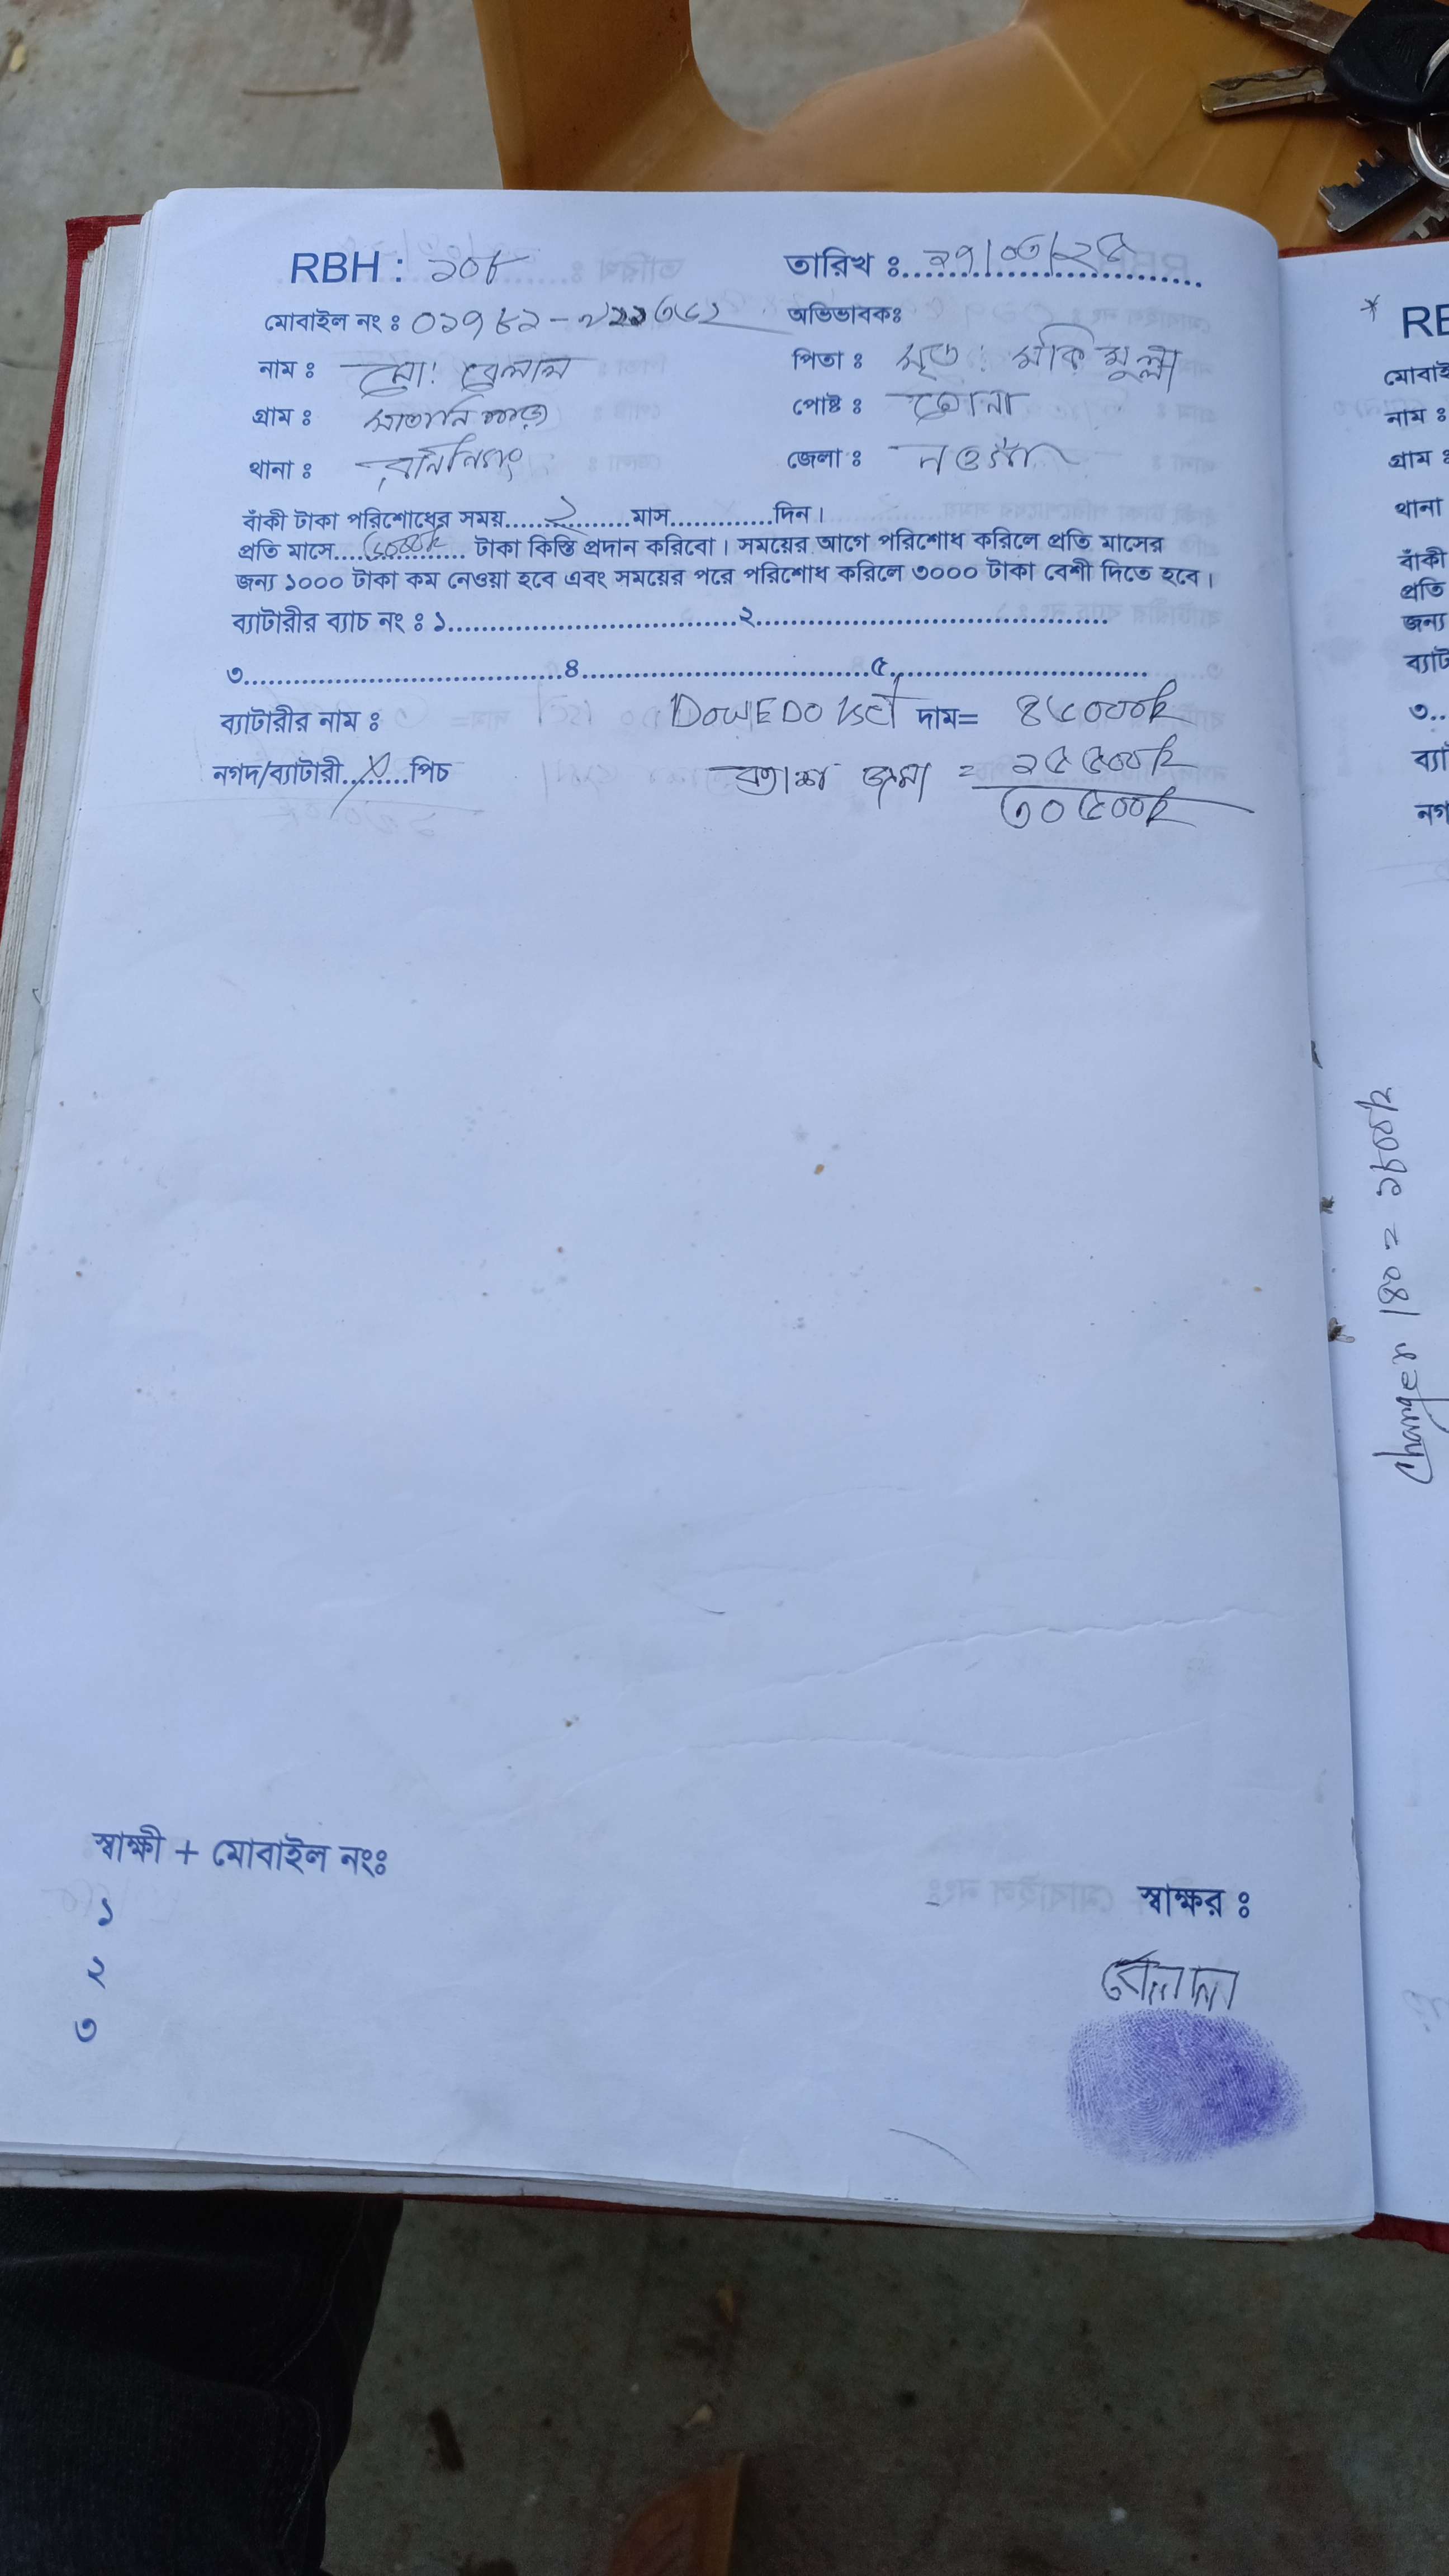 RBH : ১০৮ তারিখ ঃ ২৭/০৩/২৫
মোবাইল নং ঃ অভিভাবকঃ
নাম ঃ মো: বেলাল পিতা ঃ মৃত:
গ্রাম ঃ পোষ্ট ঃ
থানা ঃ জেলা ঃ নওগাঁ
বাঁকী টাকা পরিশোধের সময়......২......মাস.............দিন।
প্রতি মাসে.... ৫০০০৳ .... টাকা কিস্তি প্রদান করিবো। সময়ের আগে পরিশোধ করিলে প্রতি মাসের
জন্য ১০০০ টাকা কম নেওয়া হবে এবং সময়ের পরে পরিশোধ করিলে ৩০০০ টাকা বেশী দিতে হবে।
ব্যাটারীর ব্যাচ নং ঃ ১..................................২..........................................
৩.....................................৪..................................৫..............................
ব্যাটারীর নাম ঃ DOWEDO 1SET দাম=
নগদ/ব্যাটারী...X...পিচ জমা = ২৫৫০০৳
৩০৫০০৳
স্বাক্ষী + মোবাইল নংঃ
১
২
৩
স্বাক্ষর ঃ
বেলাল
* RB
মোবাই
নাম ঃ
গ্রাম ঃ
থানা
বাঁকী
প্রতি
জন্য
ব্যাট
৩..
ব্যা
নগ